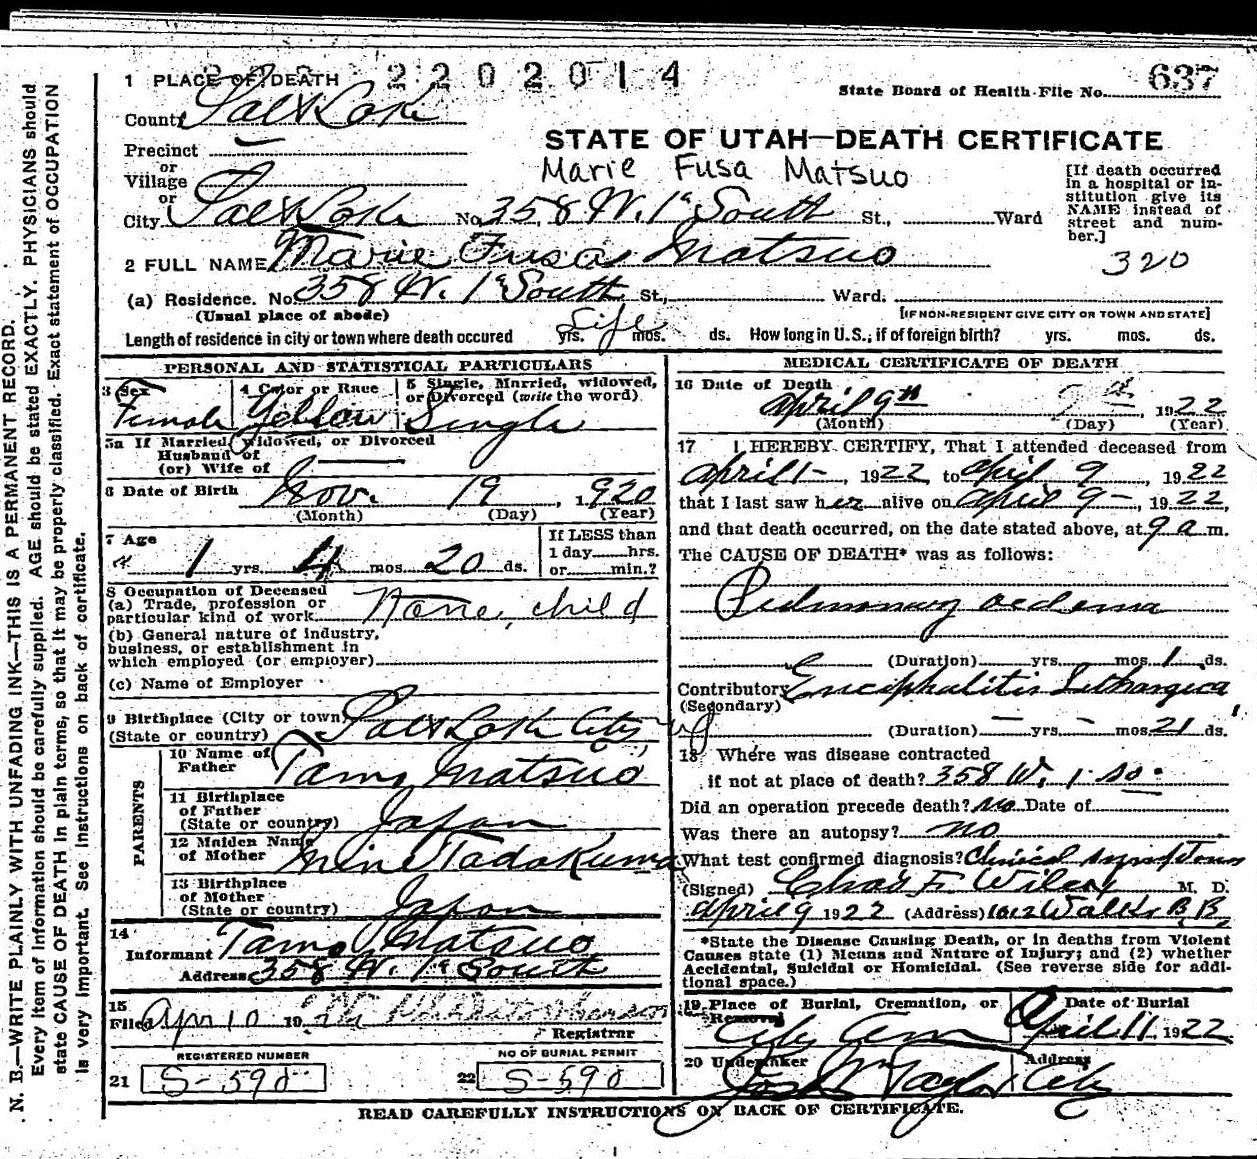 1 PLACE OF DEATH 2202014
State Board of Health File No. 637
County Salt Lake
STATE OF UTAH—DEATH CERTIFICATE
Precinct
Marie Fusa Matsuo
or
Village
or
City Salt Lake No. 358 W. 1st South St., Ward
[If death occurred
in a hospital or in-
stitution give its
NAME instead of
street and num-
ber.]
320
2 FULL NAME Marie Fusa Matsuo
(a) Residence. No. 358 W. 1st South St., Ward.
(Usual place of abode)
[IF NON-RESIDENT GIVE CITY OR TOWN AND STATE]
Length of residence in city or town where death occured Life yrs. mos. ds. How long in U.S.; if of foreign birth? yrs. mos. ds.
PERSONAL AND STATISTICAL PARTICULARS
3 Sex Female
4 Color or Race Yellow
5 Single, Married, widowed,
or Divorced (write the word)
Single
5a If Married, Widowed, or Divorced
Husband of
(or) Wife of
6 Date of Birth Nov. 19, 1920
(Month) (Day) (Year)
7 Age 1 yrs. 4 mos. 20 ds.
If LESS than
1 day......hrs.
or......min.?
8 Occupation of Deceased
(a) Trade, profession or
particular kind of work None, child
(b) General nature of industry,
business, or establishment in
which employed (or employer)
(c) Name of Employer
9 Birthplace (City or town) Salt Lake City
(State or country)
PARENTS
10 Name of
Father Tamo Matsuo
11 Birthplace
of Father
(State or country) Japan
12 Maiden Name
of Mother Mine Tadakuma
13 Birthplace
of Mother
(State or country) Japan
14
Informant Tamo Matsuo
Address 358 W. 1st South
15
Filed Apr 10 19
Registrar
REGISTERED NUMBER
21 S-590
NO OF BURIAL PERMIT
22 S-590
MEDICAL CERTIFICATE OF DEATH
16 Date of Death
April 9th 1922
(Month) (Day) (Year)
17 I HEREBY CERTIFY, That I attended deceased from
April 1-, 1922 to April 9, 1922
that I last saw her alive on April 9-, 1922,
and that death occurred, on the date stated above, at 9 a m.
The CAUSE OF DEATH* was as follows:
Pulmonary oedema
(Duration) yrs. mos. 1 ds.
Contributory Enciphalitis Lethargica
(Secondary)
(Duration) — yrs. — mos. 21 ds.
18 Where was disease contracted
if not at place of death? 358 W. 1 So.
Did an operation precede death? No Date of
Was there an autopsy? no
What test confirmed diagnosis? Clinical symptoms
(Signed) Chas F. Wilcox M. D.
April 9 1922 (Address) 1012 Walker B. B.
*State the Disease Causing Death, or in deaths from Violent
Causes state (1) Means and Nature of Injury; and (2) whether
Accidental, Suicidal or Homicidal. (See reverse side for addi-
tional space.)
19 Place of Burial, Cremation, or
Removal City Cem
Date of Burial
April 11 1922
20 Undertaker Jos Wm Taylor
Address City
READ CAREFULLY INSTRUCTIONS ON BACK OF CERTIFICATE.
N. B.—WRITE PLAINLY WITH UNFADING INK—THIS IS A PERMANENT RECORD.
Every item of information should be carefully supplied. AGE should be stated EXACTLY. PHYSICIANS should
state CAUSE OF DEATH in plain terms, so that it may be properly classified. Exact statement of OCCUPATION
is very important. See instructions on back of certificate.